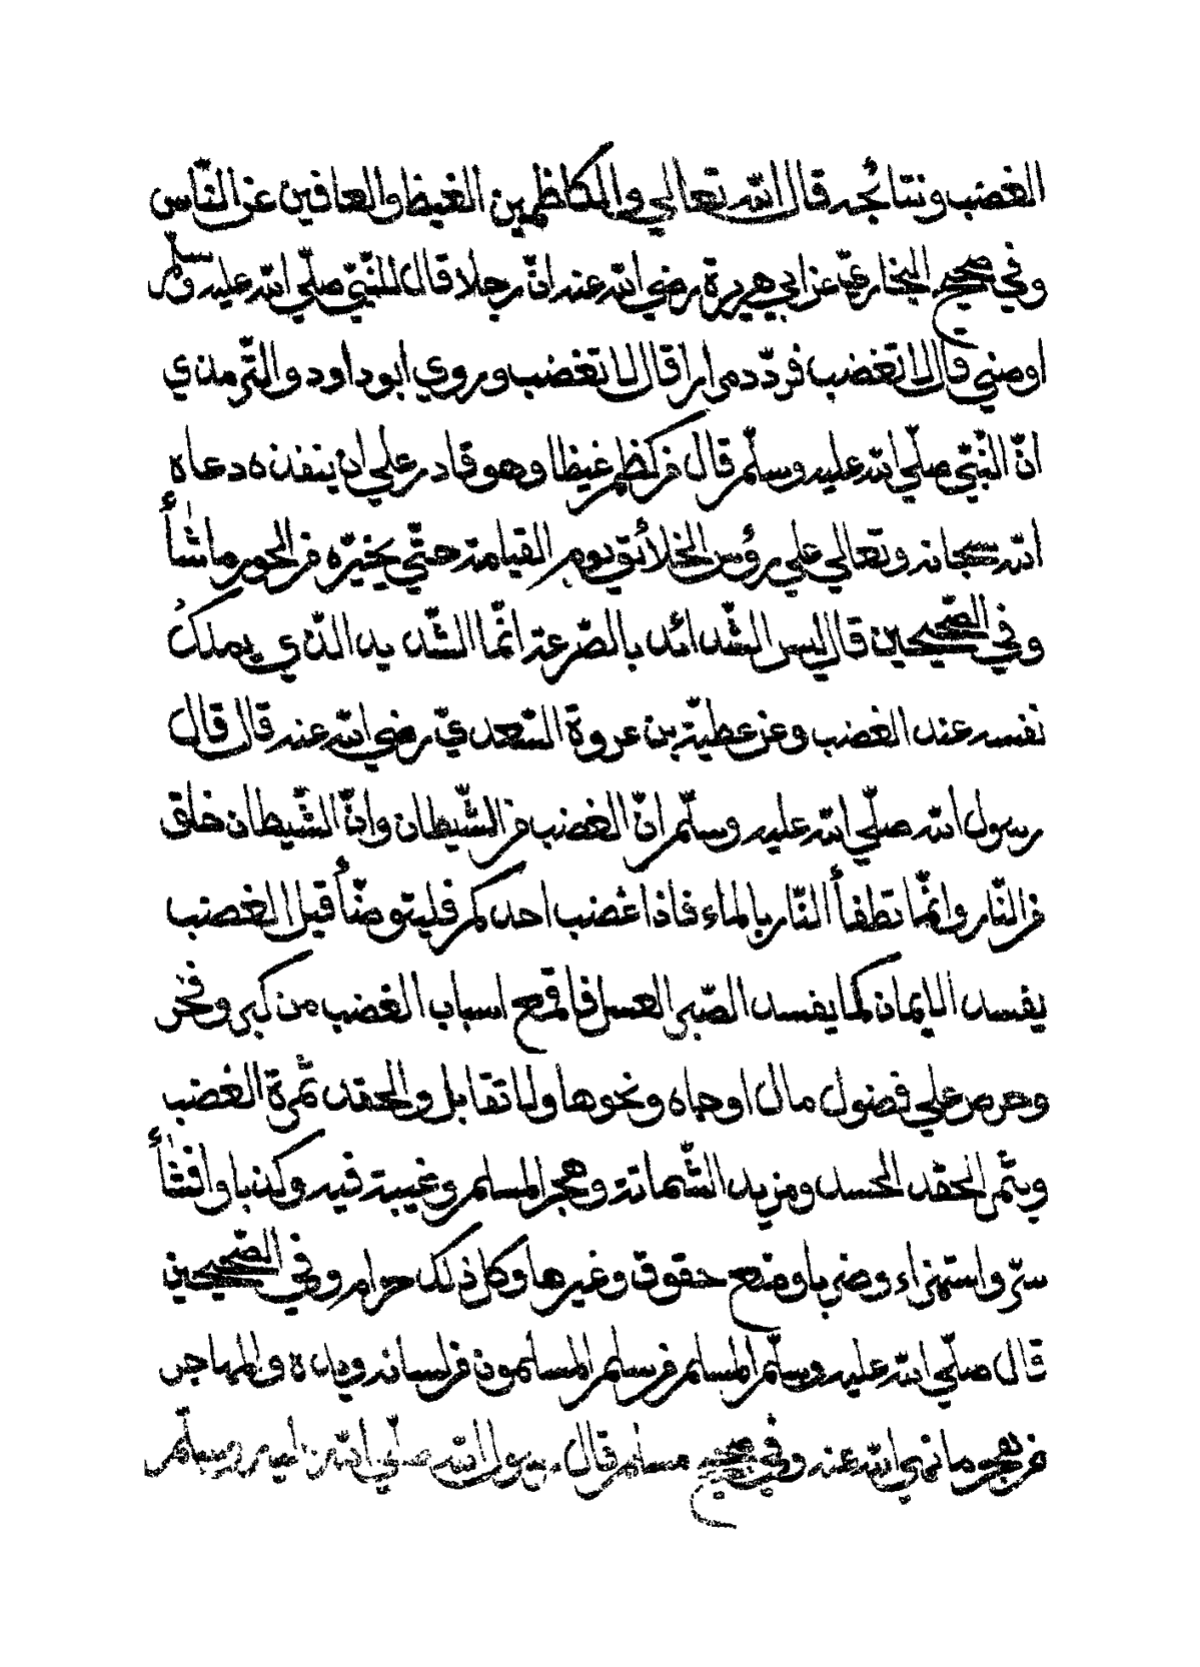 الغضب ونتائجه قال الله تعالي والكاظمين الغيظ والعافين عن الناس
وفي صحيح البخاريّ عن ابي هريرة رضي الله عنه انّ رجلا قال للنّبيّ صلّي الله عليه وسلّم
اوصني قال لا تغضب فردّد مرارا قال لا تغضب وروي ابوداود والتّرمذي
انّ النّبيّ صلّي الله عليه وسلّم قال من كظم غيظا وهو قادر علي ان ينفذه دعاه
الله سبحانه وتعالي علي رؤس الخلائق يوم القيامة حتّي يخيّره من الحور ما شأ
وفي الصّحيحين قال ليس الشّدائد بالصّرعة انّما الشّديد الّذي يملك
نفسه عند الغضب وعن عطيّة بن عروة السّعديّ رضي الله عنه قال قال
رسول الله صلّي الله عليه وسلّم انّ الغضب من الشّيطان وانّ الشّيطان خلق
من النّار وانّما تطفأ النّار بالماء فاذا غضب احدكم فليتوضّأ قيل الغضب
يفسد الايمان كما يفسد الصّبر العسل فاقمع اسباب الغضب من كبر وفخر
وحرص علي فضول مال اوجاه ونحوها ولا تقابل والحقد ثمرة الغضب
ويثمر الحقد الحسد ومزيد الشّماتة وهجر المسلم وغيبة فيه وكذبا وافشأ
سرّ واستهزاء وضربا ومنع حقوق وغيرها وكل ذلك حرام وفي الصّحيحين
قال صلّي الله عليه وسلّم المسلم من سلم المسلمون من لسانه ويده والمهاجر
من هجر ما نهي الله عنه وفي صحيح مسلم قال رسول الله صلّي الله عليه وسلّم